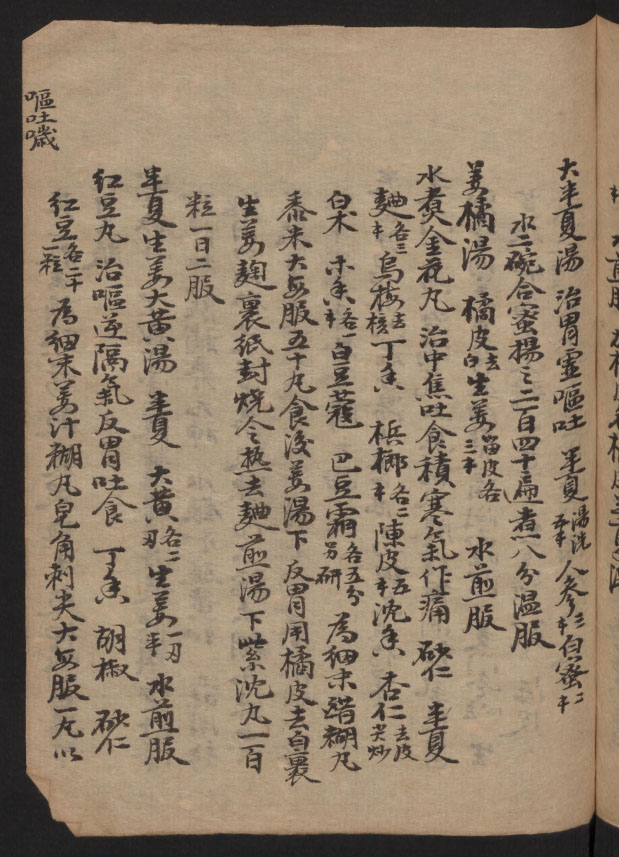 大半夏湯 治胃虛嘔吐 半夏湯洗五𠦂人參三𠦂白蜜二𠦂
水二碗合蜜揚之二百四十遍煮八分温服
姜橘湯 橘皮去白生姜留皮各三𠦂 水煎服
水煑金花丸 治中焦吐食積寒氣作痛 砂仁 半夏
麯各三𠦂烏梅去核丁香 梹榔各二𠦂陳皮五𠦂沈香 杏仁去皮尖炒
白朮 木香各一𠦂白豆蔻 巴豆霜各五分另研 為細末醋糊丸
黍米大每服五十丸食後姜湯下 反胃用橘皮去白裏
生姜麯裹紙封燒令热去麯煎湯下紫沈丸一百
粒一日二服
半夏生姜大黄湯 半夏 大黄各二刃生姜一刃半 水煎服
紅豆丸 治嘔逆隔氣反胃吐食 丁香 胡椒 砂仁
紅豆各二十一粒 為細末姜汁糊丸皂角刺夫大每服一丸以
嘔吐噦